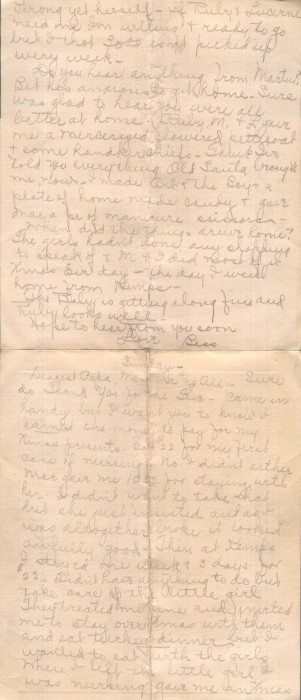 strong yet herself - If Ruby & Lucerne
need me I'm willing & ready to go
but I that Soto isn't picked up
every week -
Do you hear anything from Martin?
Bet he's anxious to get home. Sure
was glad to hear you were all
better at home. M. & I gave
me a mercerized flowered petticoat
& some handkerchiefs. I
told you everything Old Santa brought
me, now I made Art & the Boys a
plate of home made candy & gave
Mae a pr of manicure scissors -
When did the things arrive home?
The girls hadn't done any shopping
to speak of & M & I did most that
Xmas Eve day - the day I went
home from Kemps -
The Baby is getting along fine and
Ruby looks well.
Hope to hear from you soon
Love Bess
Sunday -
Dearest Papa, Mamma & All - Sure
do Thank You for the $ - Came in
handy but I want you to know I
earned the money to pay for my
Xmas presents. Got 22 for my first
case of nursing. No I didn't either
Mae gave me 10 for staying with
her. I didn't want to take that
but she just insisted and as I
was altogether broke it looked
awfully good. Then at Kemps
I stayed one week & 3 days for
22. Didn't have anything to do but
take care of the little girl
They treated me fine and invited
me to stay over Xmas with them
and eat turkey dinner but I
wanted to eat with the girls
When I left the little girl I
was nursing gave me an Xmas